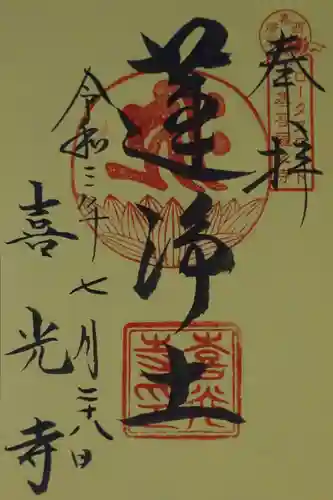 奉拝
蓮浄土
令和三年七月二十八日
喜光寺